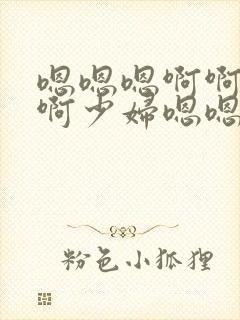 嗯嗯嗯啊啊
啊少婦嗯嗯
粉色小狐狸